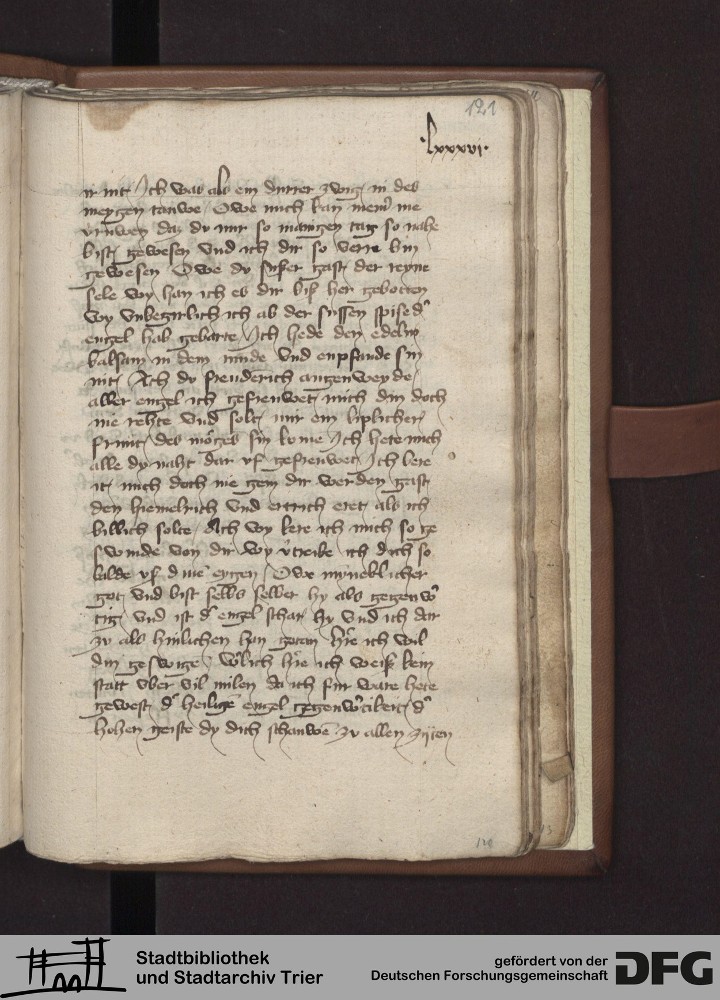 121
·lxxxvi·
ir nit / Ich was als ein durrer zwig in des
meygen tauwe Owe mich kan niem̅ me
v̓ruwen daz du mir so manigen tag so nahe
bist gewesen Vnd ich dir so verre bin
gewesen Owe du suser gast der reyne
sele wy han ich es dir biß her gebotten
Wy vnbegirlich ich ab der sussen spise d̓
engel hab Ich hede den edeln
balsam in dem munde Vnd enpfande sin
nit / Ach du freuderich augenweyde
aller engel ich gefreuwet mich din doch
nie rehte Vnd solt mir ein liplicher
frunt des morges sin kome / Ich hete mich
alle dy naht dar vf gefreuwet / Ich bere
it mich doch nie gein dir werden gast
den hiemelrich Vnd ertrich eret als ich
billich solte / Ach wy kere ich mich so ge
swinde von dir wy v̓treibe ich dich so
balde vf d eygen / Owe myneklicher
got vnd bist selbs selber hy als gegenw̓
tig Vnd ist d̓ engel schar hy Vnd ich dar
zu als han getan h̓re ich wil
din geswige / W̓lich h̓re ich weiß kein
statt vber vil milen da ich sin ware hete
gewest d̓ heilige̅ engel gegenw̓tikeit d̓
hohen geiste dy dich schauwe̅ zu allen zijten
120
13
Stadtbibliothek
und Stadtarchiv Trier
gefördert von der
Deutschen Forschungsgemeinschaft
DFG